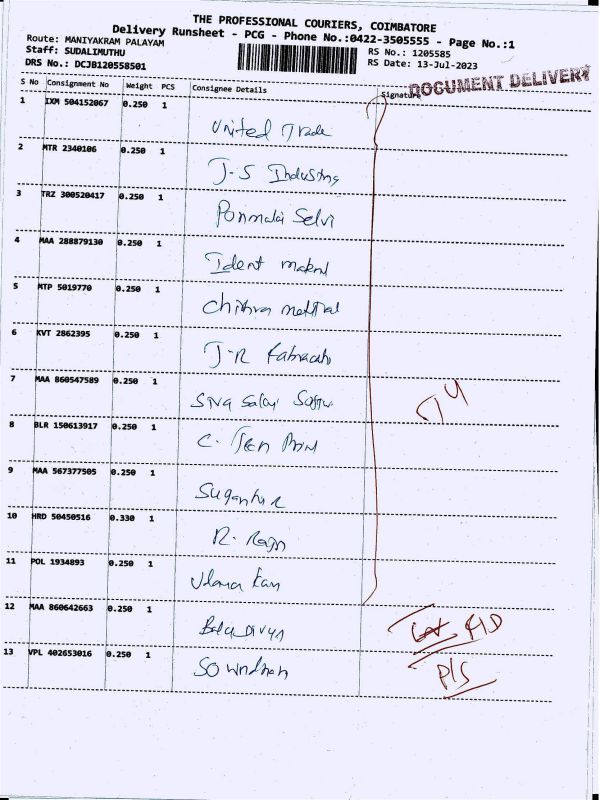 THE PROFESSIONAL COURIERS, COIMBATORE
Delivery Runsheet - PCG - Phone No.:0422-3505555 - Page No.:1
Route: MANIYAKRAM PALAYAM
Staff: SUDALIMUTHU RS No.: 1205585
DRS No.: DCJB120558501 RS Date: 13-Jul-2023
DOCUMENT DELIVERY
S No Consignment No Weight PCS Consignee Details Signature
1 IXM 504152067 0.250 1 United Trade
2 MTR 2340106 0.250 1 J-S Industring
3 TRZ 300520417 0.250 1 Ponmalai Selvi
4 MAA 288879130 0.250 1 Ident
5 MTP 5019770 0.250 1 Chithra
6 KVT 2862395 0.250 1 J-R
7 MAA 860547589 0.250 1 Siva
8 BLR 150613917 0.250 1 C.
9 MAA 567377505 0.250 1
10 HRD 50450516 0.330 1 R.
11 POL 1934893 0.250 1
12 MAA 860642663 0.250 1
13 VPL 402653016 0.250 1
P/S